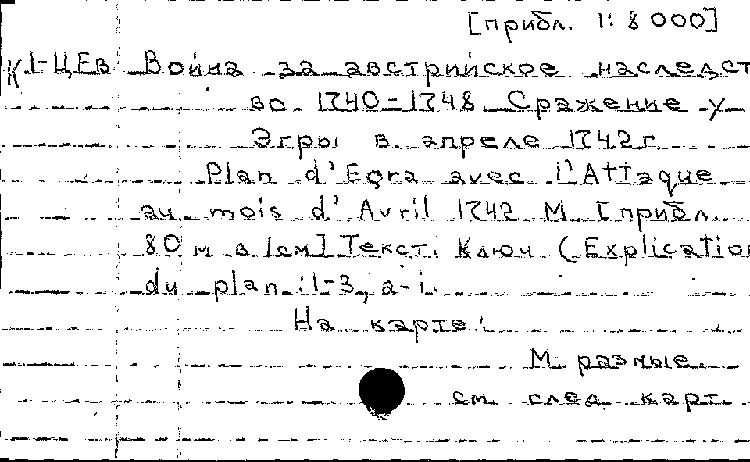 [прибл. 1: 8 000]
К 1-ЦЕв Война за австрийское наследст
во 1740-1748. Сражение у
Эгры в апреле 1742 г.
Plan d'Egra avec l'Attaque
au mois d'Avril 1742 М. [прибл.
80 м в 1см] Текст. Ключ (Explication
du plan: 1-3, a-i.
На карте:
М. разные.
см. след. карт.